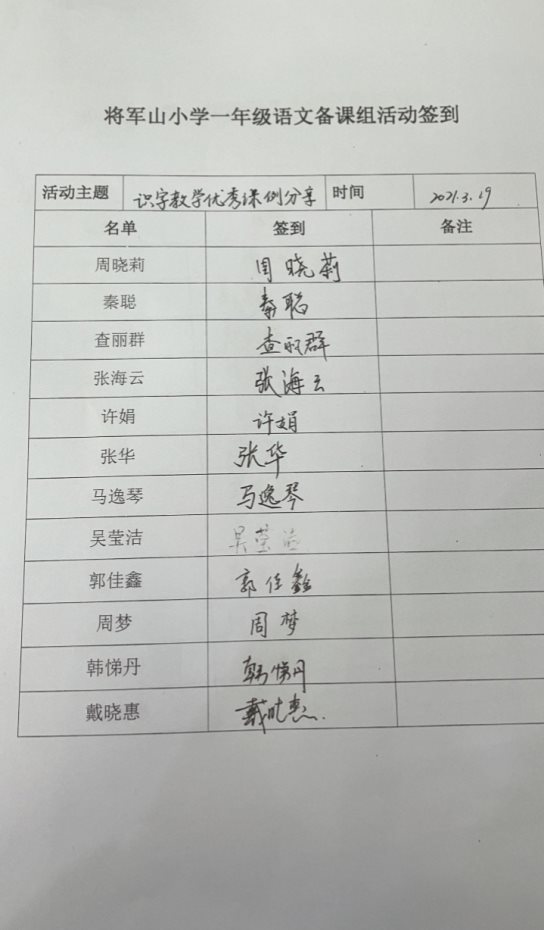 将军山小学一年级语文备课组活动签到
活动主题 识字教学优秀课例分享 时间 2021.3.19
名单 签到 备注
周晓莉 周晓莉
秦聪 秦聪
查丽群 查丽群
张海云 张海云
许娟 许娟
张华 张华
马逸琴 马逸琴
吴莹洁 吴莹洁
郭佳鑫 郭佳鑫
周梦 周梦
韩悌丹 韩悌丹
戴晓惠 戴晓惠